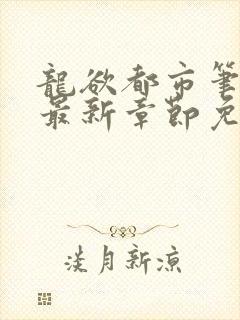 龍欲都市筆
最新章節免
淡月新涼